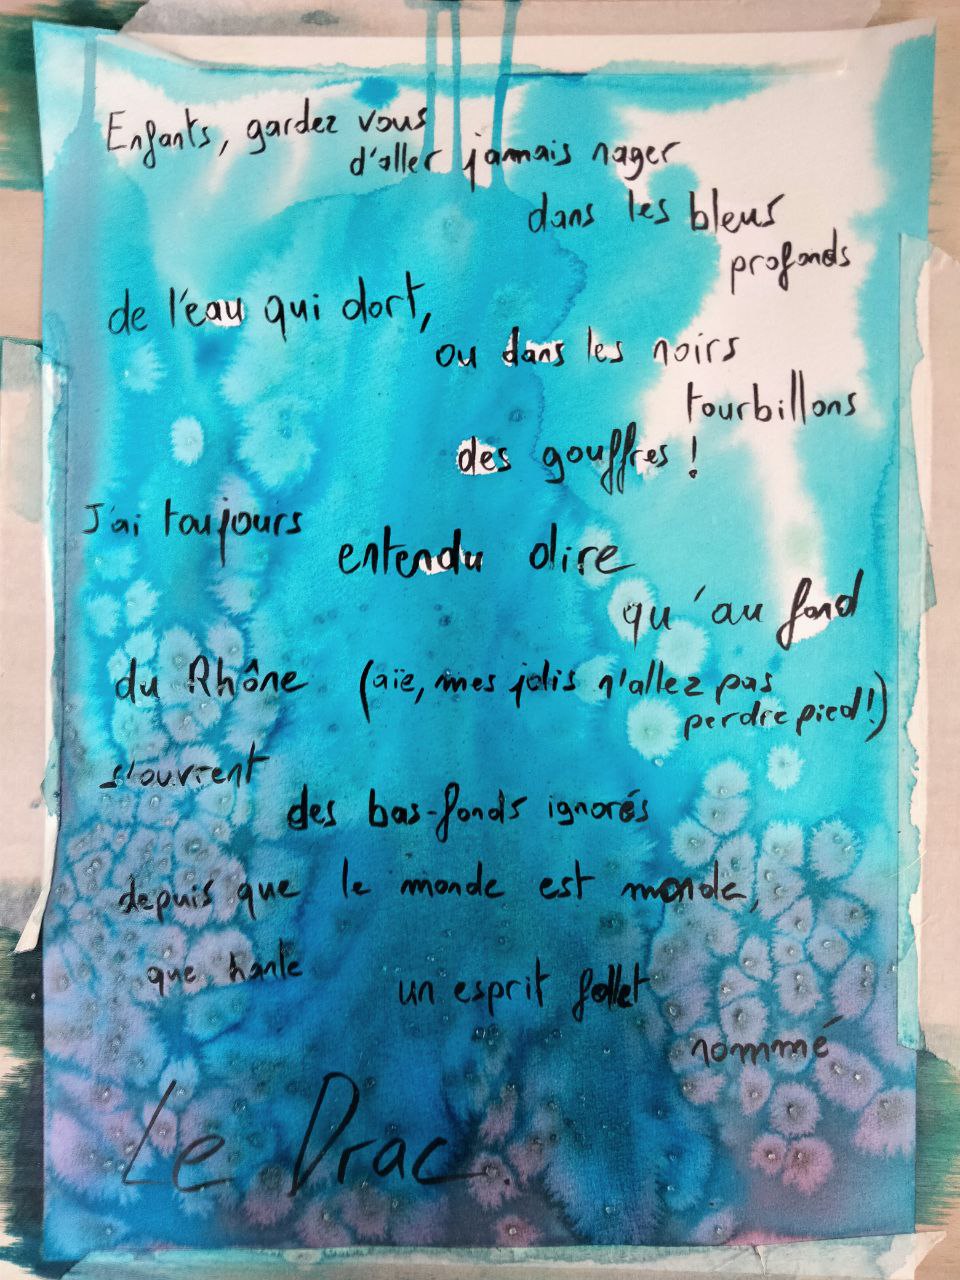 Enfants, gardez vous
d'aller jamais nager
dans les bleus
profonds
de l'eau qui dort,
ou dans les noirs
tourbillons
des gouffres !
J'ai toujours
entendu dire
qu'au fond
du Rhône (aïe, mes jolis n'allez pas
perdre pied !)
s'ouvrent
des bas-fonds ignorés
depuis que le monde est monde,
que hante
un esprit follet
nommé
Le Drac.